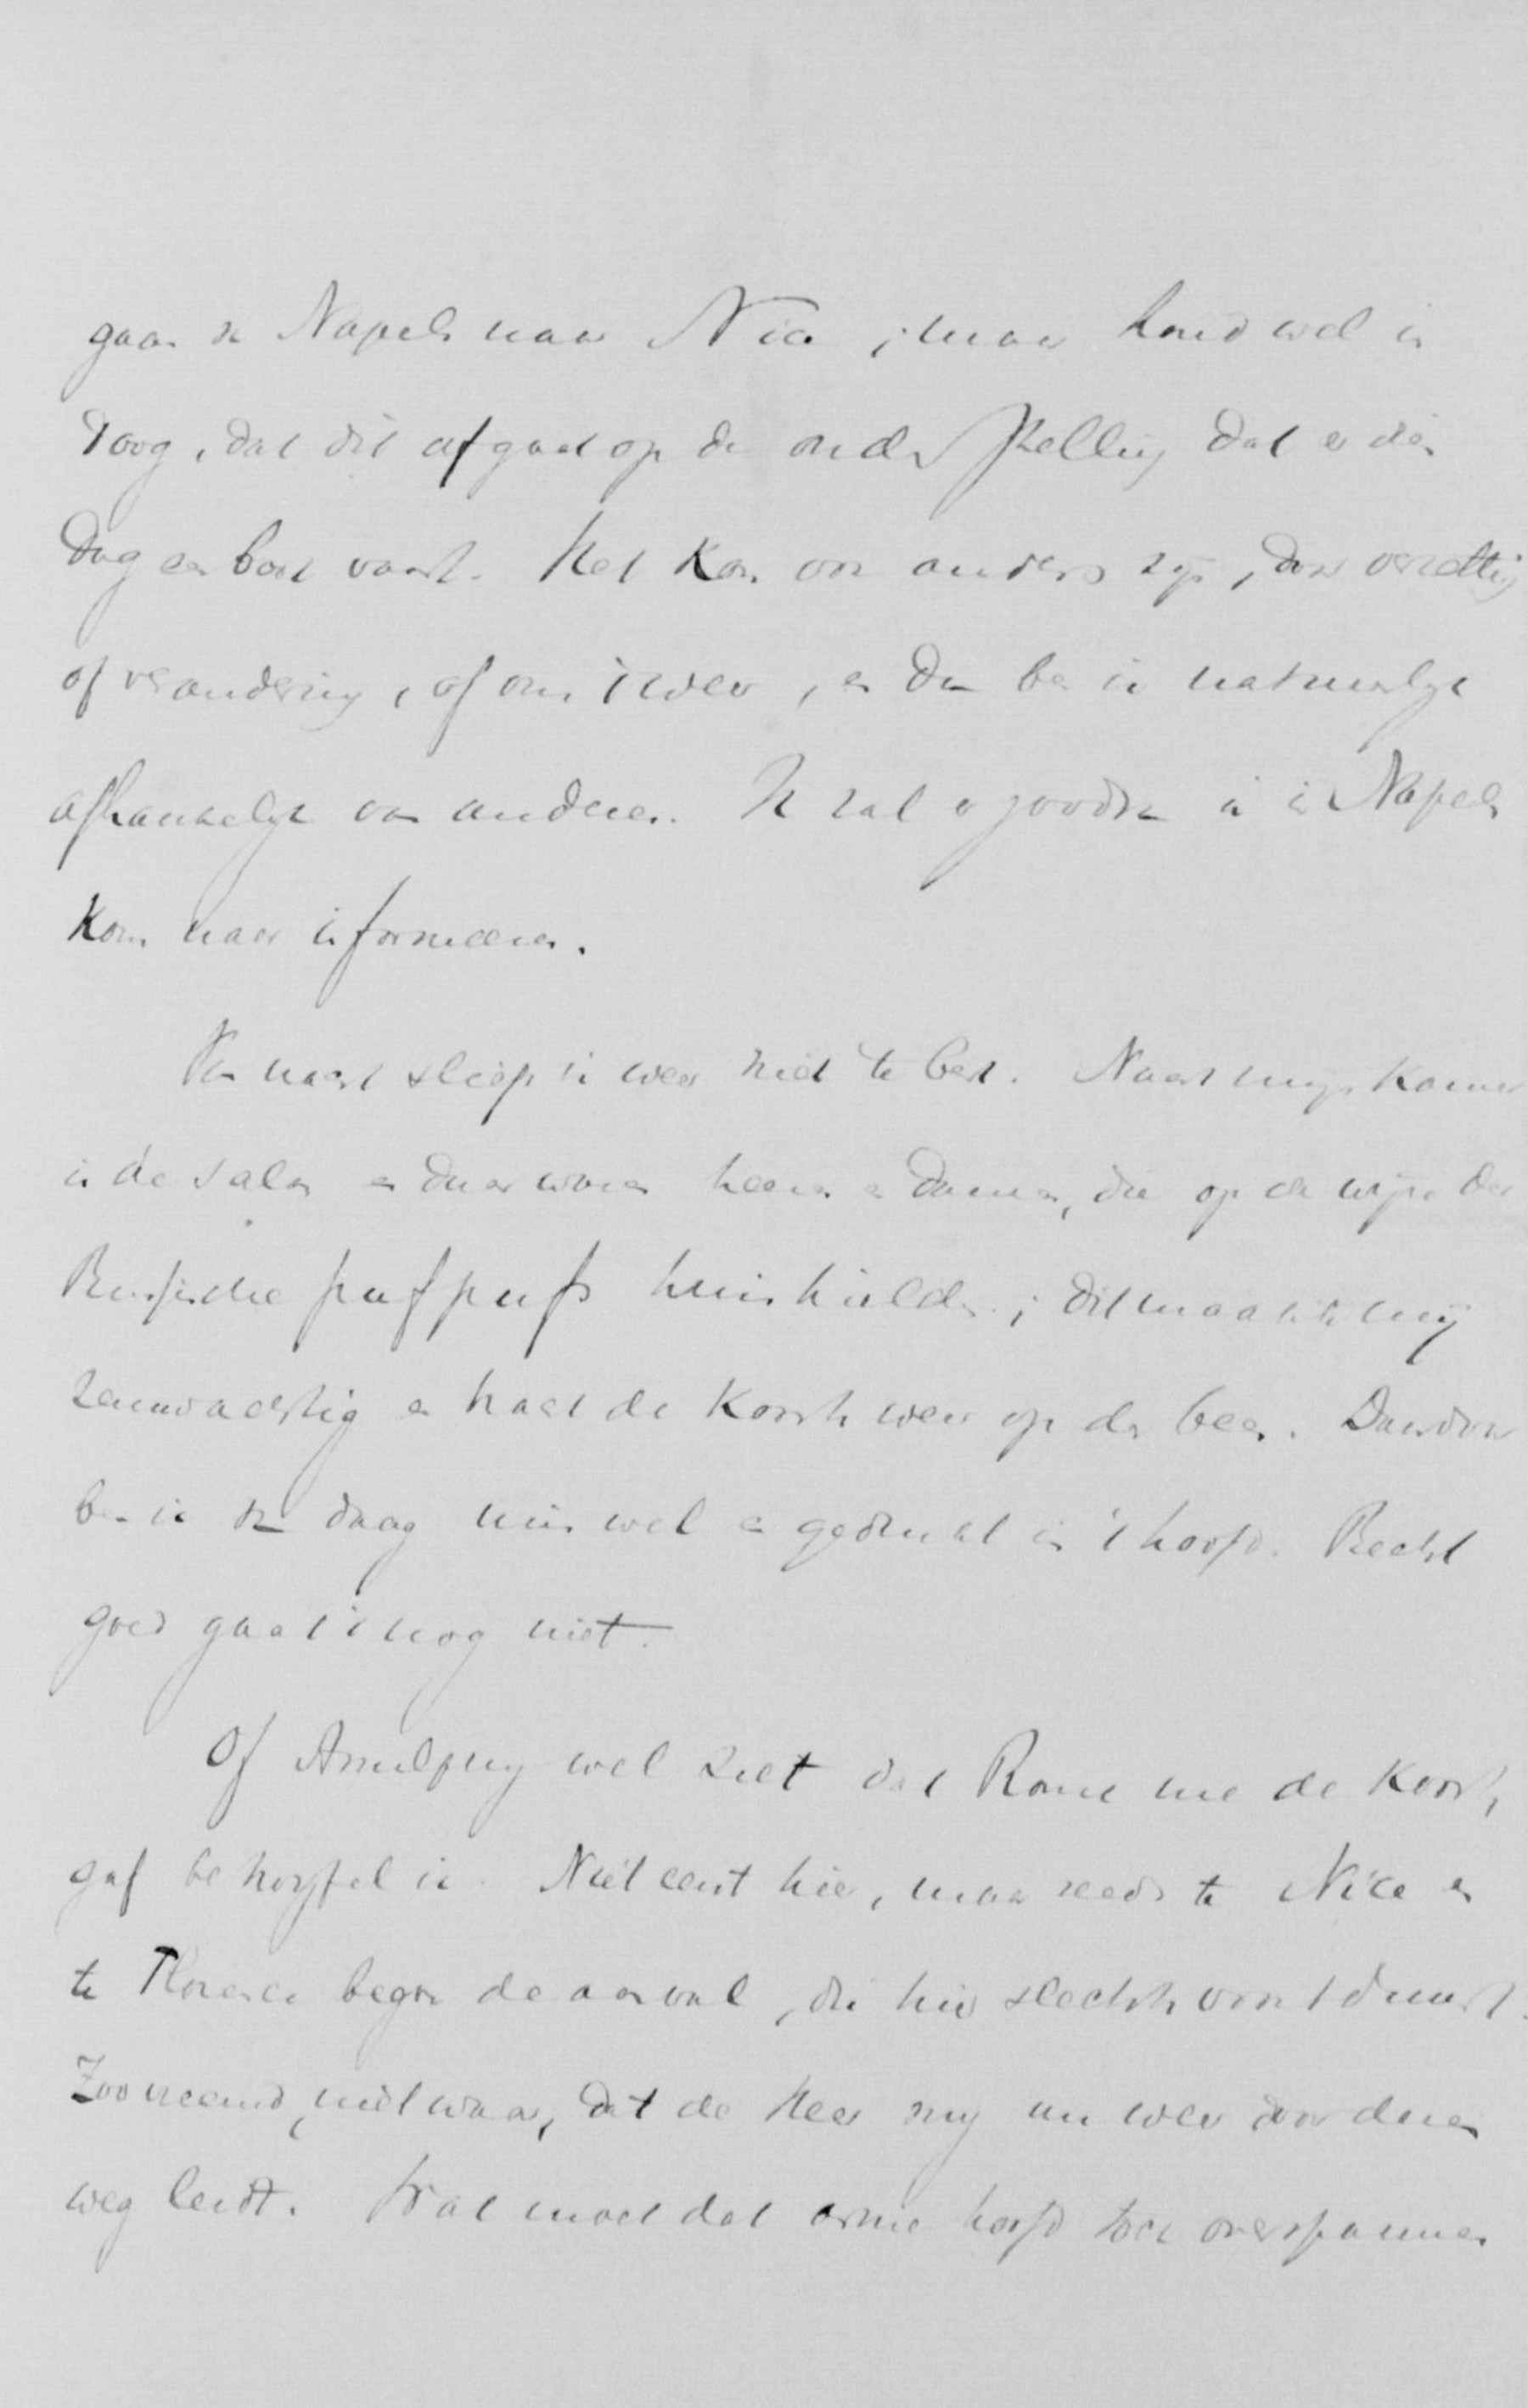 gaan Napels naar Nice, maar houd wel in
't oog, dat dit afgaat op de onderstelling dat er dien
dag een boot vaart. Het kan ook anders zijn, door verzetting
of verandering, of om 't weer, en dan ben ik natuurlijk
afhankelijk van anderen. Ik zal er zoodra ik in Napels
kom naar informeeren.
Van nacht sliep ik weer niet te best. Naast mijn kamer
is de salon en daar waren heeren en dames, die op de wijze der
Russische pufpufs huishielden; dit maakte mij
zenuwachtig en had de koorts weer op de been. Daardoor
ben ik van daag min wel en gedrukt in 't hoofd. Recht
goed gaat 't nog niet.
Of wel ziet dat Rome me de koorts
gaf betwijfel ik. Niet eerst hier, maar reeds te Nice en
te Florence begon de aanval, die hier slechts voortduurt.
Zoo vreemd, niet waar, dat de Heer mij nu weer door dezen
weg leidt. Wat moet dat arme hoofd toch overspannen